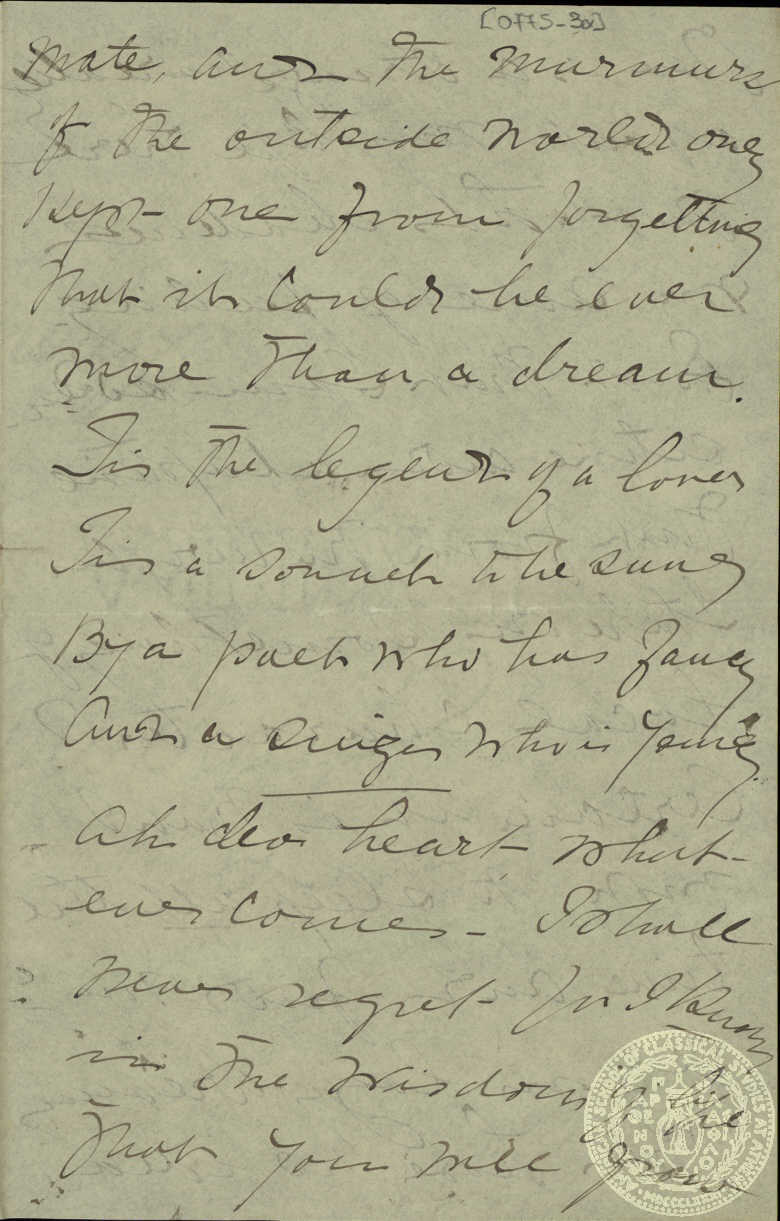 [0775-3a]
mate, and the murmurs
of the outside world only
kept one from forgetting
that it could be ever
more than a dream.
Tis the legend of a lover
Tis a sonnet to be sung
By a poet who has fancy
And a singer who is young.
Ah dear heart what-
ever comes - I shall
never regret - for I know
in the wisdom of the
that you will grow
SCHOOL OF CLASSICAL STUDIES AT ATHENS